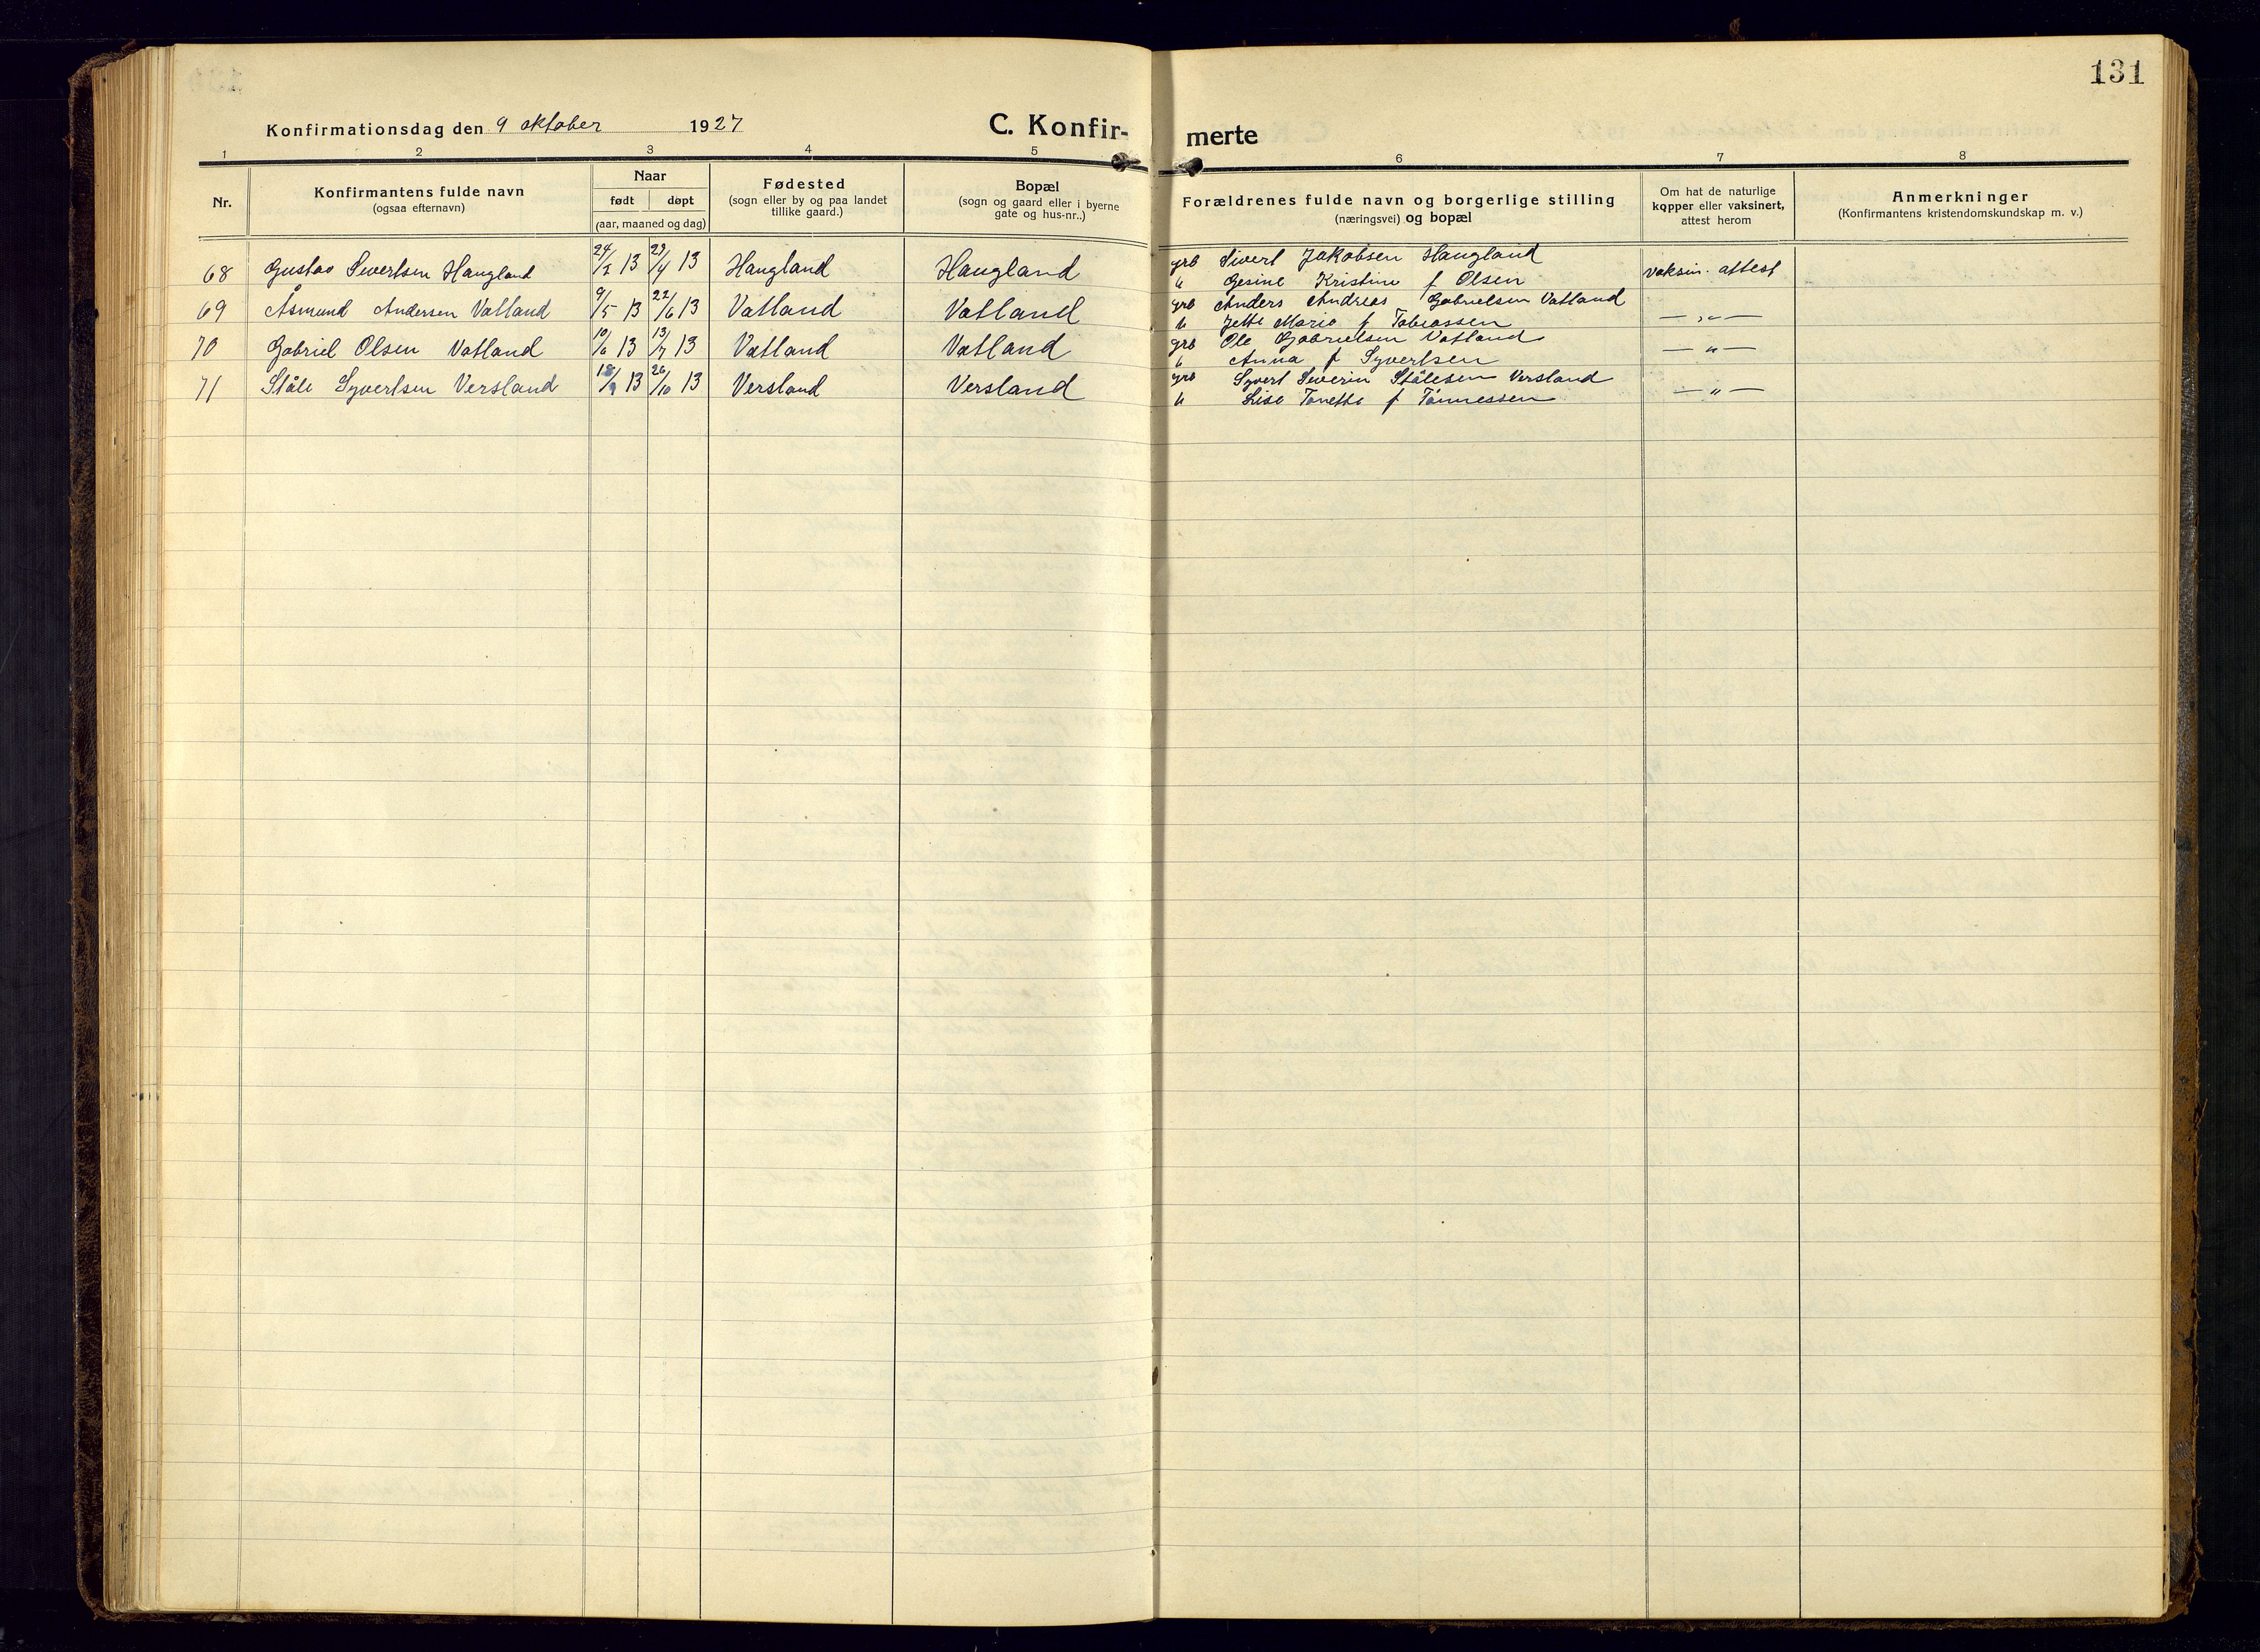 131
Konfirmationsdag den 9 oktober 1927
C. Konfir- merte
1 2 3 4 5 6 7 8
Nr.
Konfirmantens fulde navn
(ogsaa efternavn)
Naar
født døpt
(aar, maaned og dag)
Fødested
(sogn eller by og paa landet
tillike gaard.)
Bopæl
(sogn og gaard eller i byerne
gate og hus-nr.,)
Forældrenes fulde navn og borgerlige stilling
(næringsvei) og bopæl
Om hat de naturlige
kopper eller vaksinert,
attest herom
Anmerkninger
(Konfirmantens kristendomskundskap m. v.)
68 Gustav Sivertsen Haugland 24/2 13 /4 13 Haugland Haugland grb Sivert Jakobsen Haugland vaksin. attest
h Gesine Kristine f Olsen
69 Åsmund Andersen Vatland 9/5 13 22/6 13 Vatland Vatland grb Anders Andreas Gabrielsen Vatland — „ —
h Jette Marie f Tobiassen
70 Gabriel Olsen Vatland 10/6 13 13/7 13 Vatland Vatland grb Ole Gabrielsen Vatland — „ —
h Anna f Syvertsen
71 Ståle Syvertsen Versland 18/9 13 26/10 13 Versland Versland grb Syvert Severin Ståلesen Versland — „ —
h Lise Tonette f Tönnessen